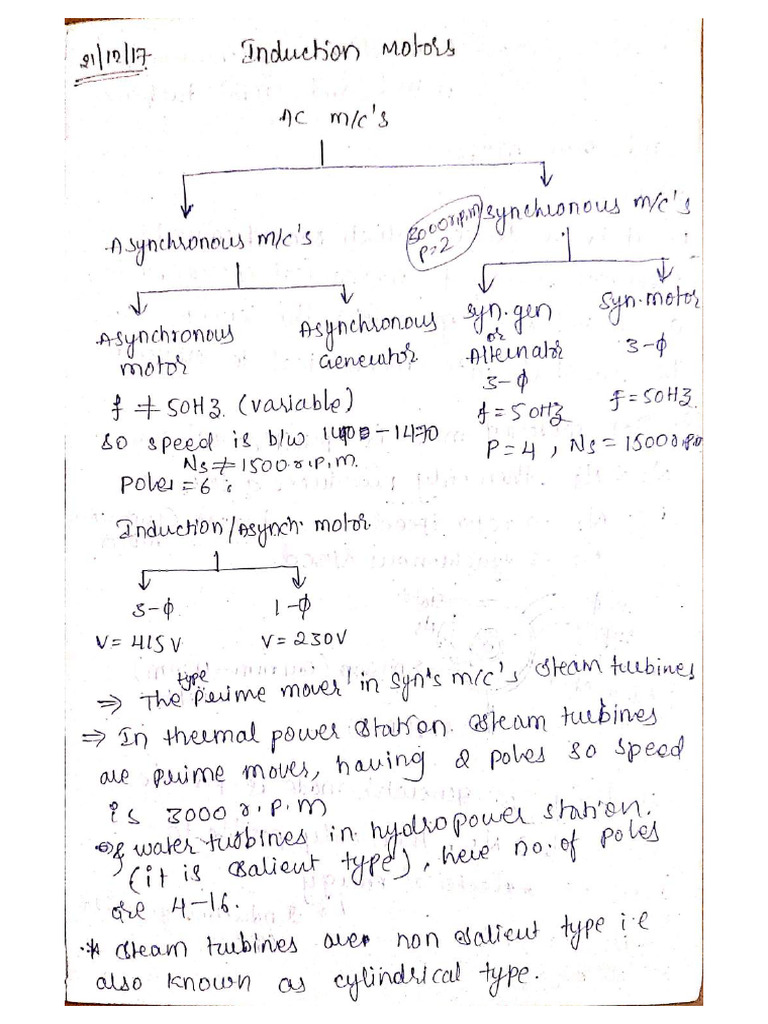 21/12/17
Induction Motors
AC m/c's
Asynchronous m/c's
3000 r.p.m
P=2
Synchronous m/c's
Asynchronous
motor
Asynchronous
Generator
Syn. gen
or
Alternator
3-ϕ
f = 50Hz
Syn. motor
3-ϕ
f = 50Hz
P = 4, Ns = 1500 r.p.
f ≠ 50Hz (variable)
so speed is b/w 1400-1470
Ns ≠ 1500 r.p.m.
Poles = 6
Induction/Asynch. motor
3-ϕ
V = 415 V
1-ϕ
V = 230V
type
⇒ The prime mover in syn's m/c's steam turbines
⇒ In thermal power station steam turbines
are prime moves, having 2 poles so speed
is 3000 r.p.m
& water turbines in hydropower station.
(it is salient type), here no. of poles
are 4-16.
* steam turbines are non salient type i.e
also known as cylindrical type.